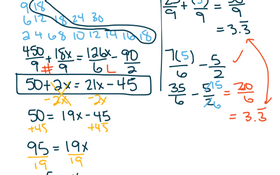 9 18
6 12 18 24 30
2 4 6 8 10 12 14 16 18
450/9 + 18x/9 = 126x/6 - 90/2
50 + 2x = 21x - 45
-2x -2x
50 = 19x - 45
+45 +45
95 = 19x
19 19
9 9 9
= 3.3̅
7(5)/6 - 5/2
35/6 - 5/2 = 20/6
= 3.3̅